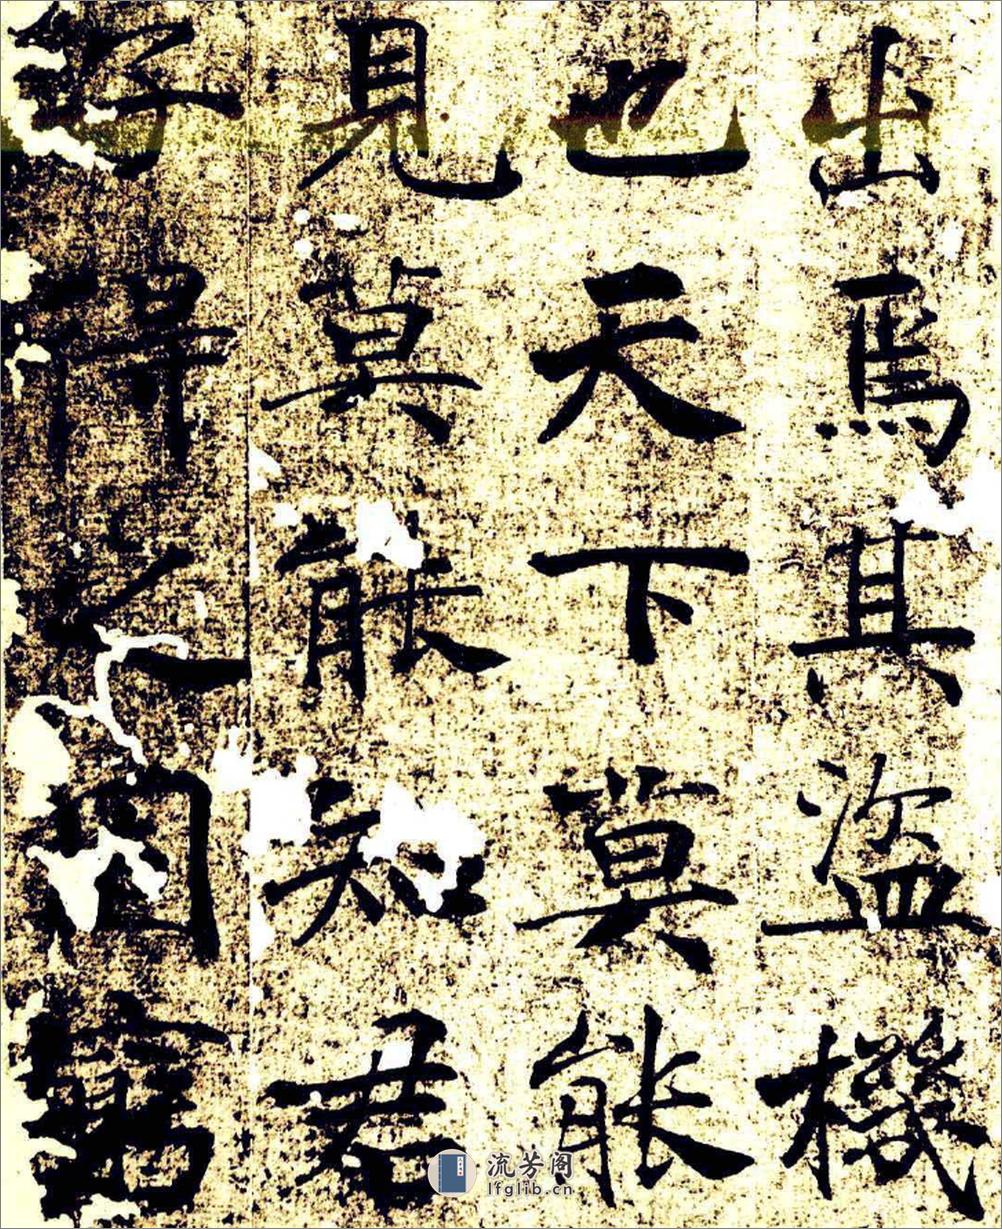 出焉其盜機
也天下莫能
見莫能知君
子得之固窮
流芳阁
lfglib.cn